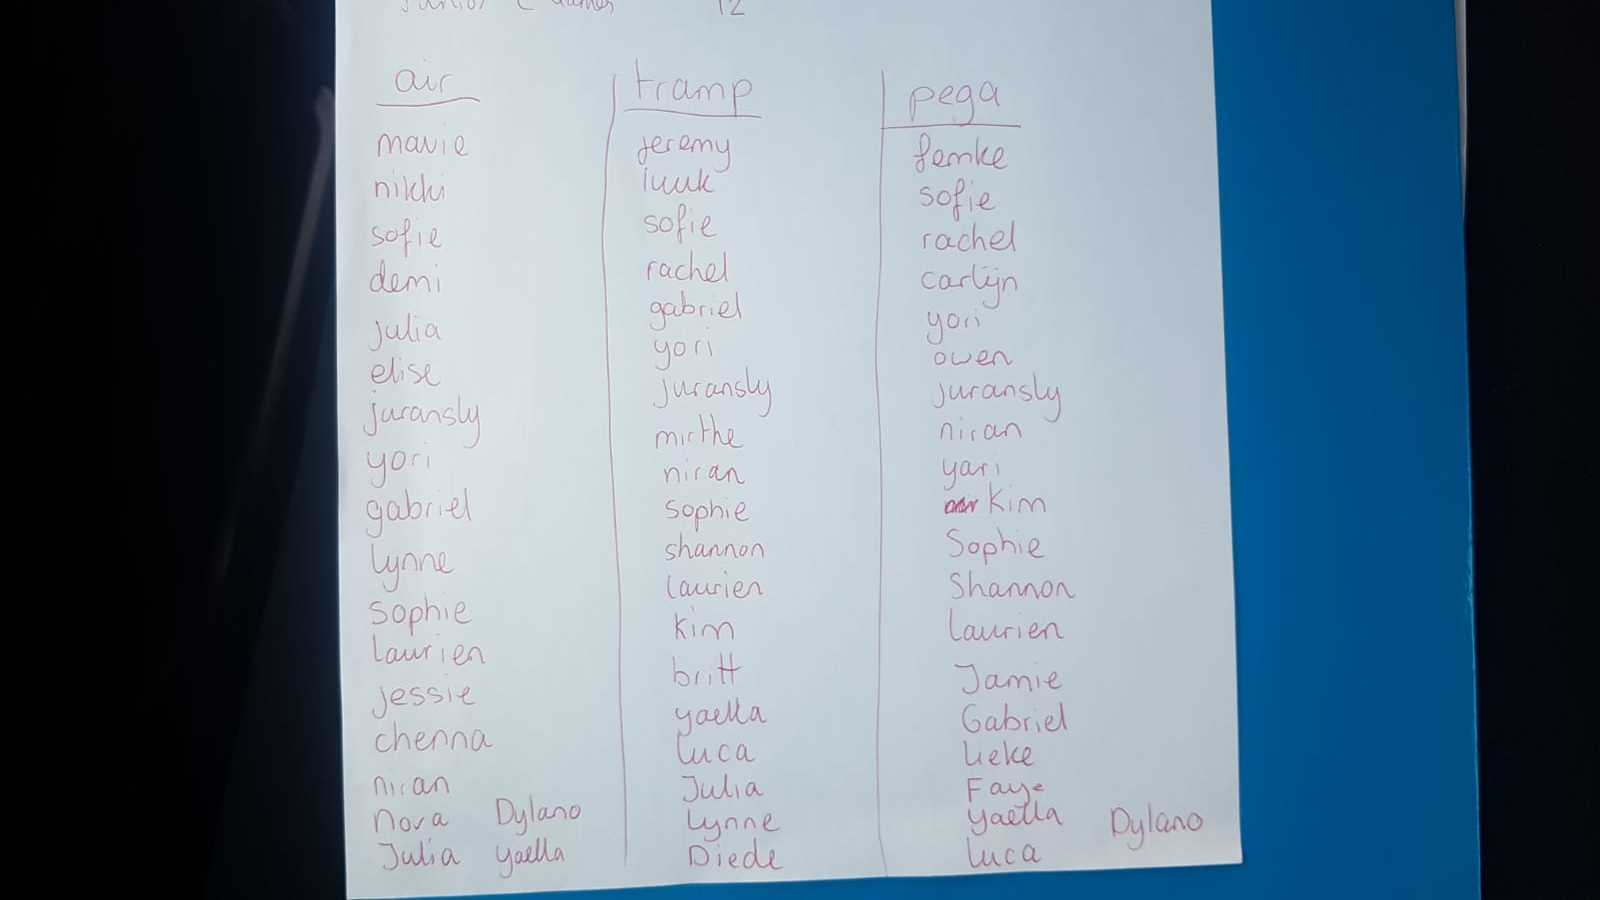 12
air
mavie
nikki
sofie
demi
julia
elise
juransly
yori
gabriel
lynne
sophie
laurien
jessie
chenna
niran
Nova Dylano
Julia yaella
tramp
jeremy
luuk
sofie
rachel
gabriel
yori
juransly
mirthe
niran
sophie
shannon
laurien
kim
britt
yaella
luca
Julia
Lynne
Diede
pega
femke
sofie
rachel
carlijn
yori
owen
juransly
niran
yari
Kim
Sophie
Shannon
Laurien
Jamie
Gabriel
Lieke
Faye
yaella Dylano
Luca